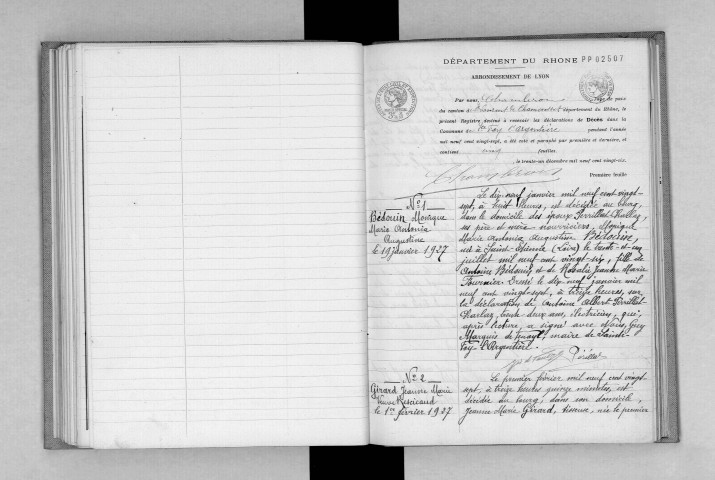 DÉPARTEMENT DU RHONE PP02507
ARRONDISSEMENT DE LYON
Par nous, Chamberon juge de paix
du canton de département du Rhône, le
présent Registre destiné à recevoir les déclarations de Décès dans la
Commune de Ste Foy l'Argentière pendant l'année
mil neuf cent vingt-sept, a été coté et paraphé par première et dernière, et
contient cinq feuilles.
, le trente-un décembre mil neuf cent vingt-six.
Première feuille
No 1
Bédouin Monique
Marie Antonia
Augustine
le 19 janvier 1927
Le dix-neuf janvier mil neuf cent vingt-
sept, à huit heures, est décédée au bourg,
dans le domicile des époux Perrillat-Charlaz,
ses père et mère nourriciers, Monique
Marie Antonia Augustine Bédouin,
née à Saint-Etienne (Loire) le trente-et-un
juillet mil neuf cent vingt-six, fille de
Antoine Bédouin et de Rosalie Jeanne Marie
Fournier. Dressé le dix-neuf janvier mil
neuf cent vingt-sept, à treize heures, sur
la déclaration de Antoine Albert Perrillat-
Charlaz, trente deux ans, électricien, qui,
après lecture, a signé avec Nous, Guy
Marquis de maire de Sainte-
Foy-l'Argentière.
No 2
Girard Jeanne Marie
Veuve
le 1er février 1927
Le premier février mil neuf cent vingt-
sept, à treize heures quinze minutes, est
décédée au bourg, dans son domicile,
Jeanne Marie Girard, tisseuse, née le premier